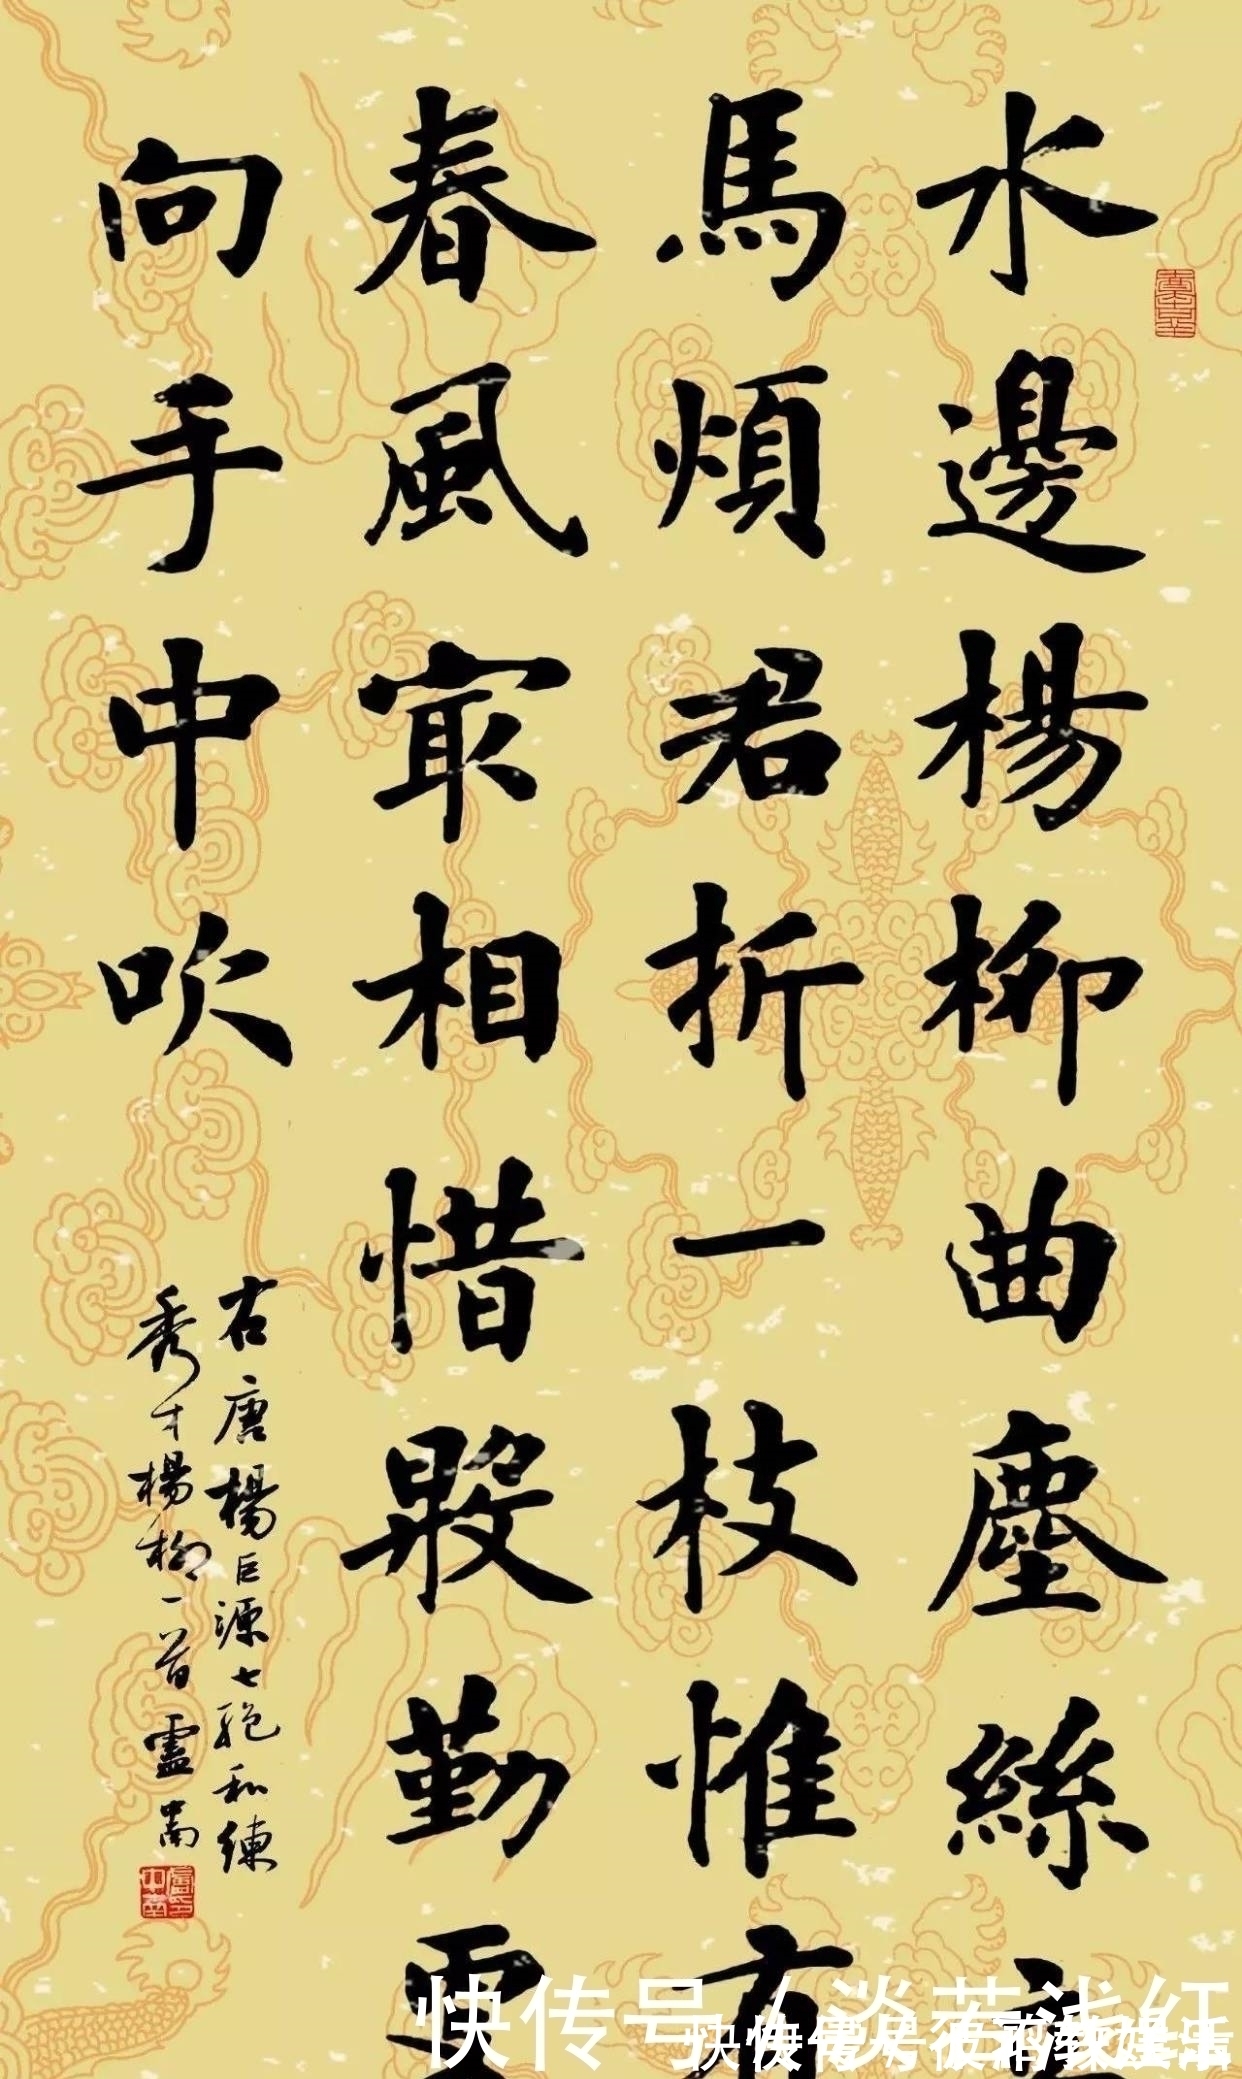 水邊楊柳曲塵絲立
馬煩君折一枝惟有
春風冣相惜殷勤更
向手中吹
右唐楊巨源七絕和練
秀才楊柳一首 盧中南
快传号/淡若浅红